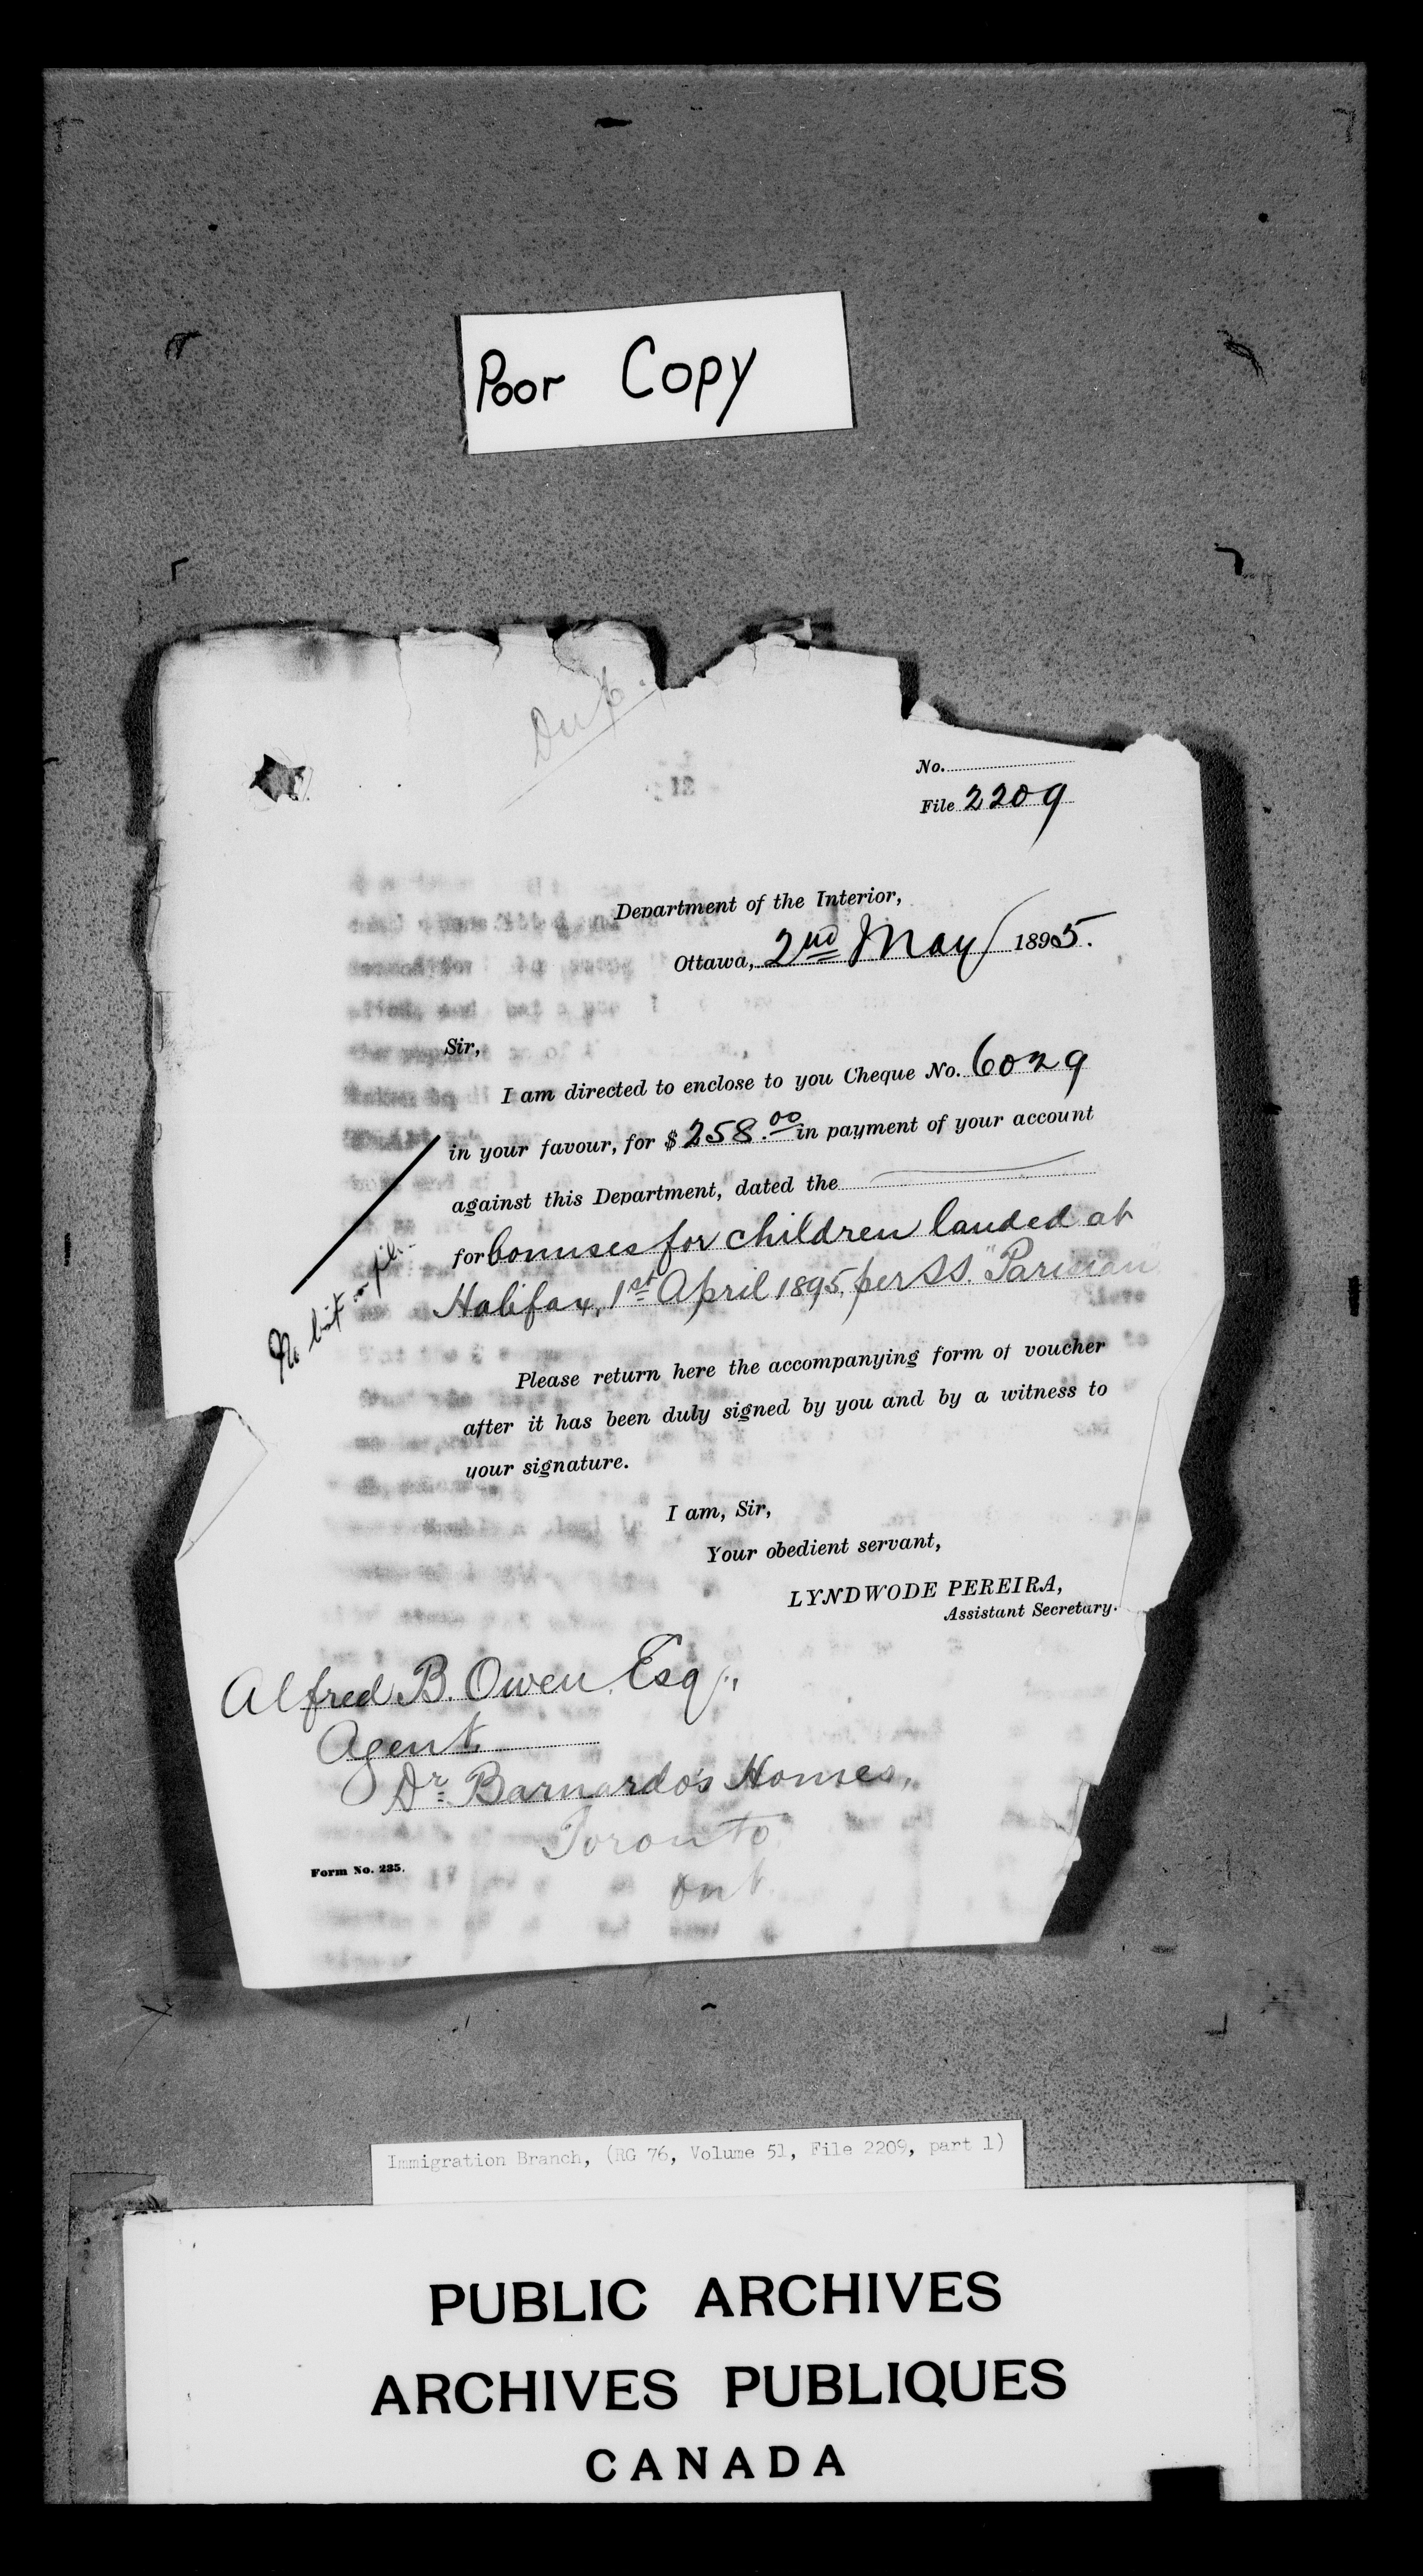 Poor Copy
Dup.
12
No.
File 2209
Department of the Interior,
Ottawa, 2nd May 1895.
Sir,
I am directed to enclose to you Cheque No. 6029
in your favour, for $258.00 in payment of your account
against this Department, dated the
for bonuses for children landed at
Halifax, 1st April 1895, per SS. "Parisian"
No list on file
Please return here the accompanying form of voucher
after it has been duly signed by you and by a witness to
your signature.
I am, Sir,
Your obedient servant,
LYNDWODE PEREIRA,
Assistant Secretary.
Alfred B. Owen, Esq.,
Agent
Dr. Barnardo's Homes,
Toronto
Ont.
Form No. 235.
Immigration Branch, (RG 76, Volume 51, File 2209, part 1)
PUBLIC ARCHIVES
ARCHIVES PUBLIQUES
CANADA